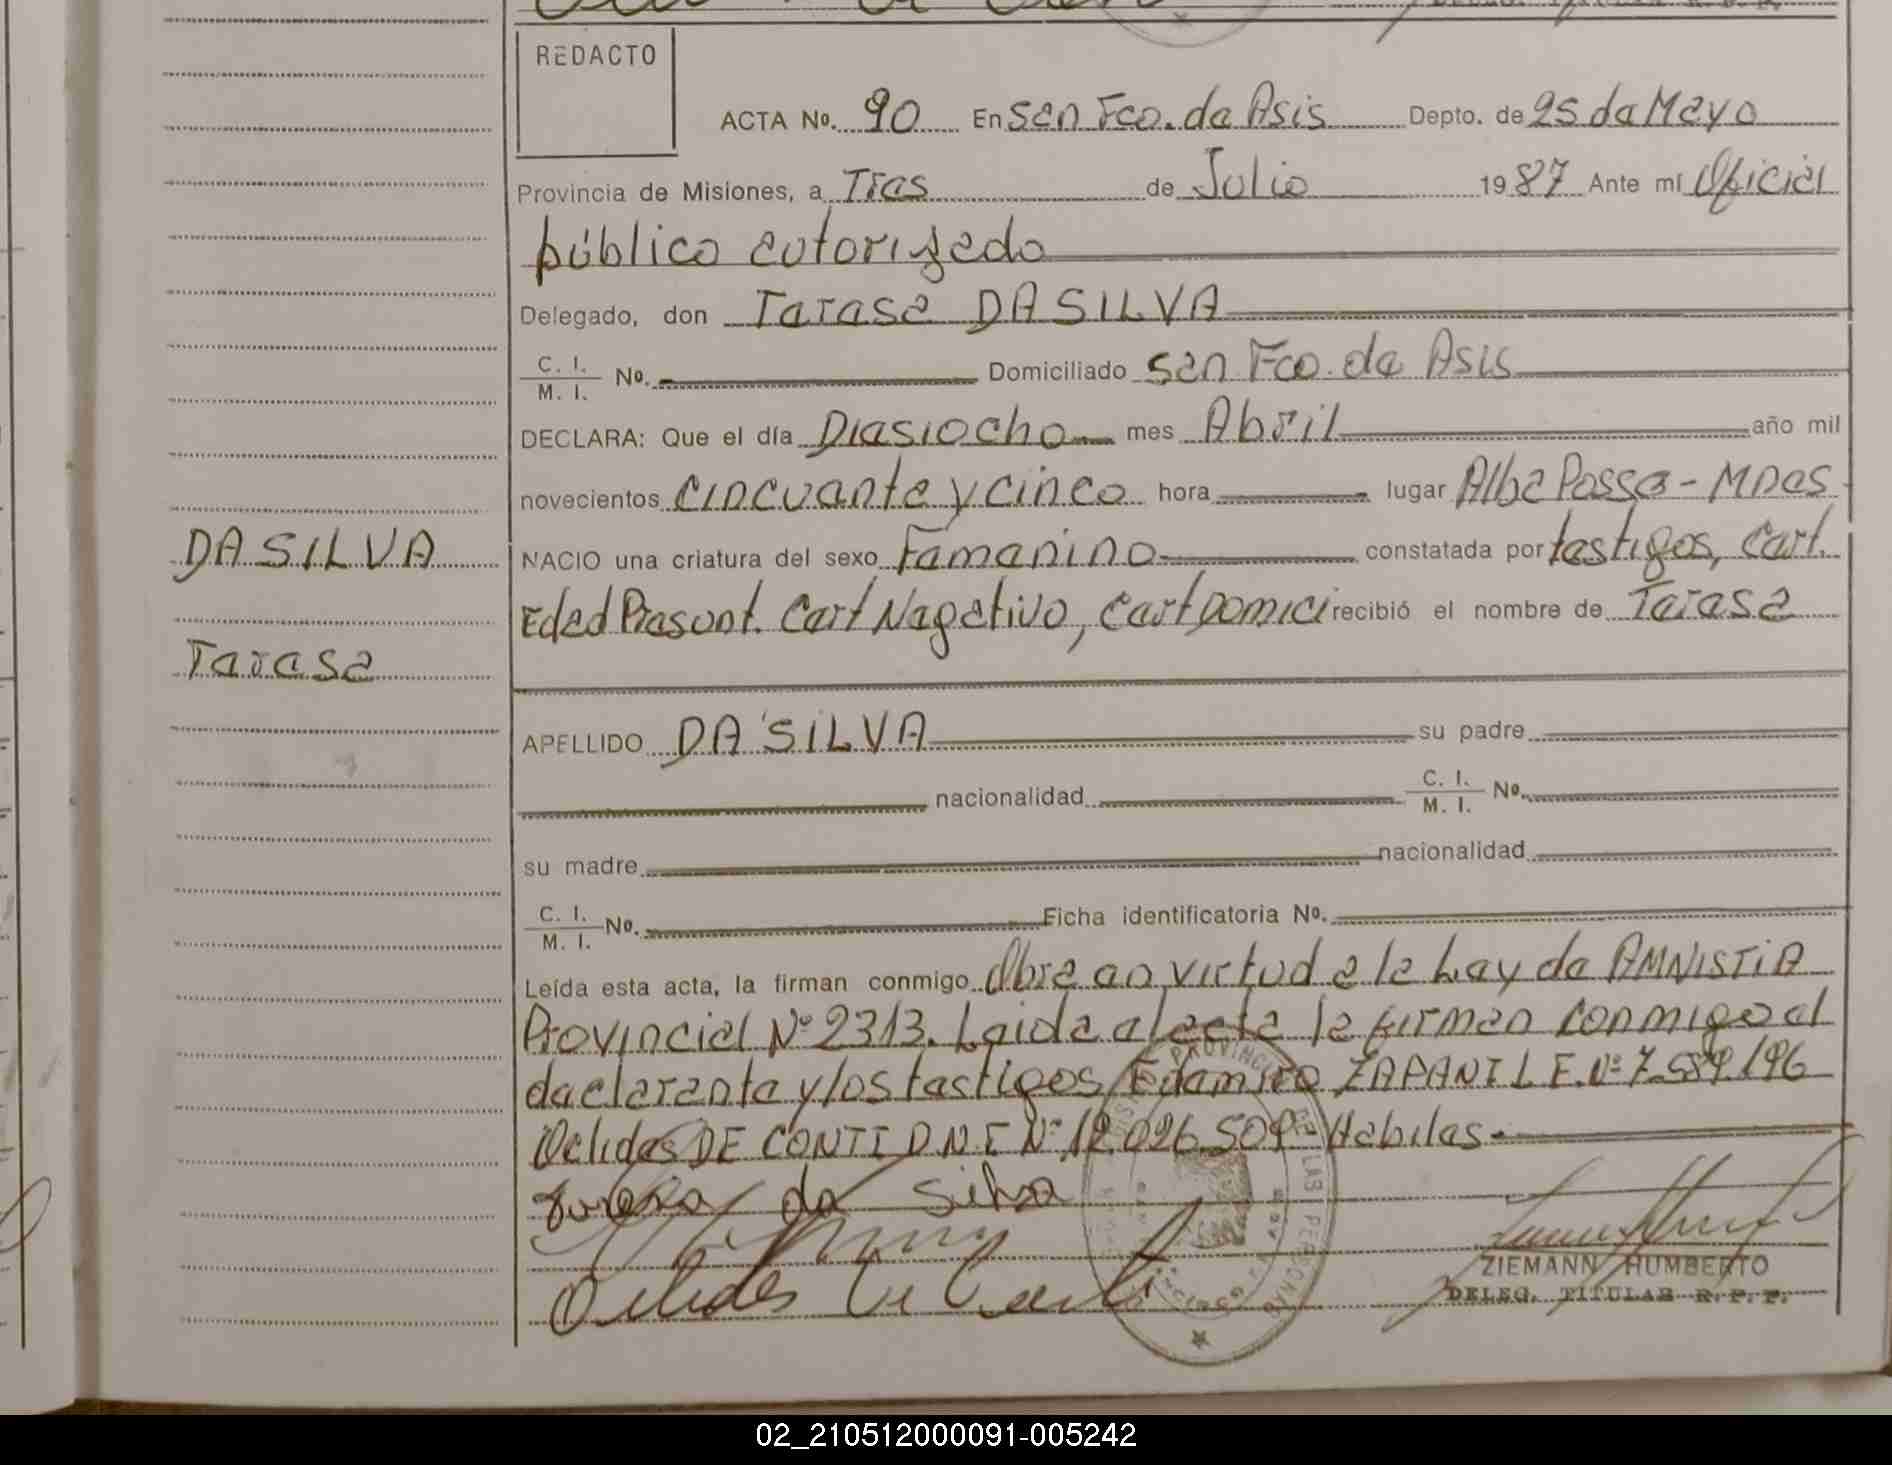 REDACTO
ACTA Nº. 90 En San Fco. de Asis Depto. de 25 de Mayo
Provincia de Misiones, a Tres de Julio 1987 Ante mí Oficial
público autorizado
Delegado, don Teresa DA SILVA
C. I. / M. I. Nº. Domiciliado San Fco. de Asis
DECLARA: Que el día Diesiocho mes Abril año mil
novecientos cincuanta y cinco hora lugar Alba Posse - Mnes
NACIO una criatura del sexo Femenino constatada por testigos, Cart.
DA SILVA
Edad Presunt. Cart Negativo, Cart Domici recibió el nombre de Teresa
Teresa
APELLIDO DA SILVA su padre
nacionalidad C. I. / M. I. Nº.
su madre nacionalidad
C. I. / M. I. Nº. Ficha identificatoria Nº.
Leída esta acta, la firman conmigo Obra en virtud a la Ley de AMNISTIA
Provincial Nº 2313. Leida el acta la firman conmigo el
declarante y los testigos ZAPANI L E. Nº 7.589.196
Delides DE CONTI D.N.I Nº 12.026.509 - Habiles -
Tereza da Silva
Delides De Conti
ZIEMANN HUMBERTO
DELEG. TITULAR R. P. P.
02_210512000091-005242